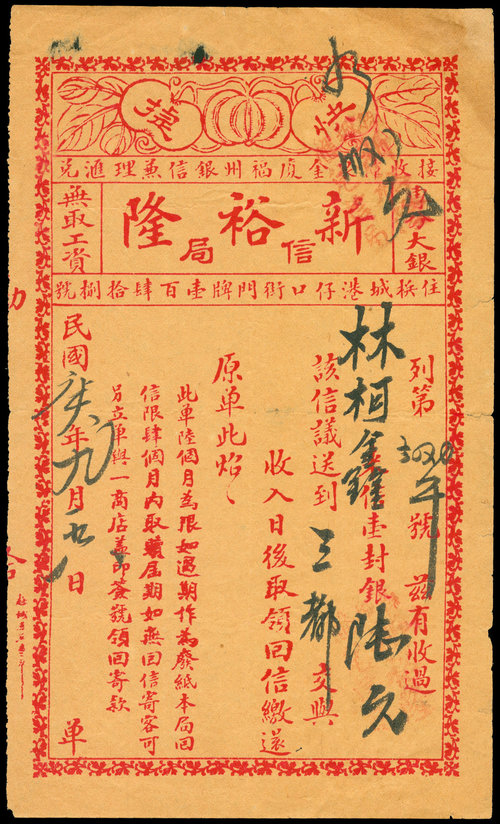 快捷
金廈福州銀信兼理滙兌
大銀
新裕隆
信局
無取工資
住檳城港仔口街門牌壹百肆拾捌號
列第 號 茲有收過
林柯 信壹封銀陸元
該信議送到三都交與
收入日後取領回信繳還
原单此炤
此单陸個月為限如過期作為廢紙本局回
信限肆個月內取 屆期如無回信寄客可
另立单與一商店蓋印簽號領回寄款
民國 年九月 日 单